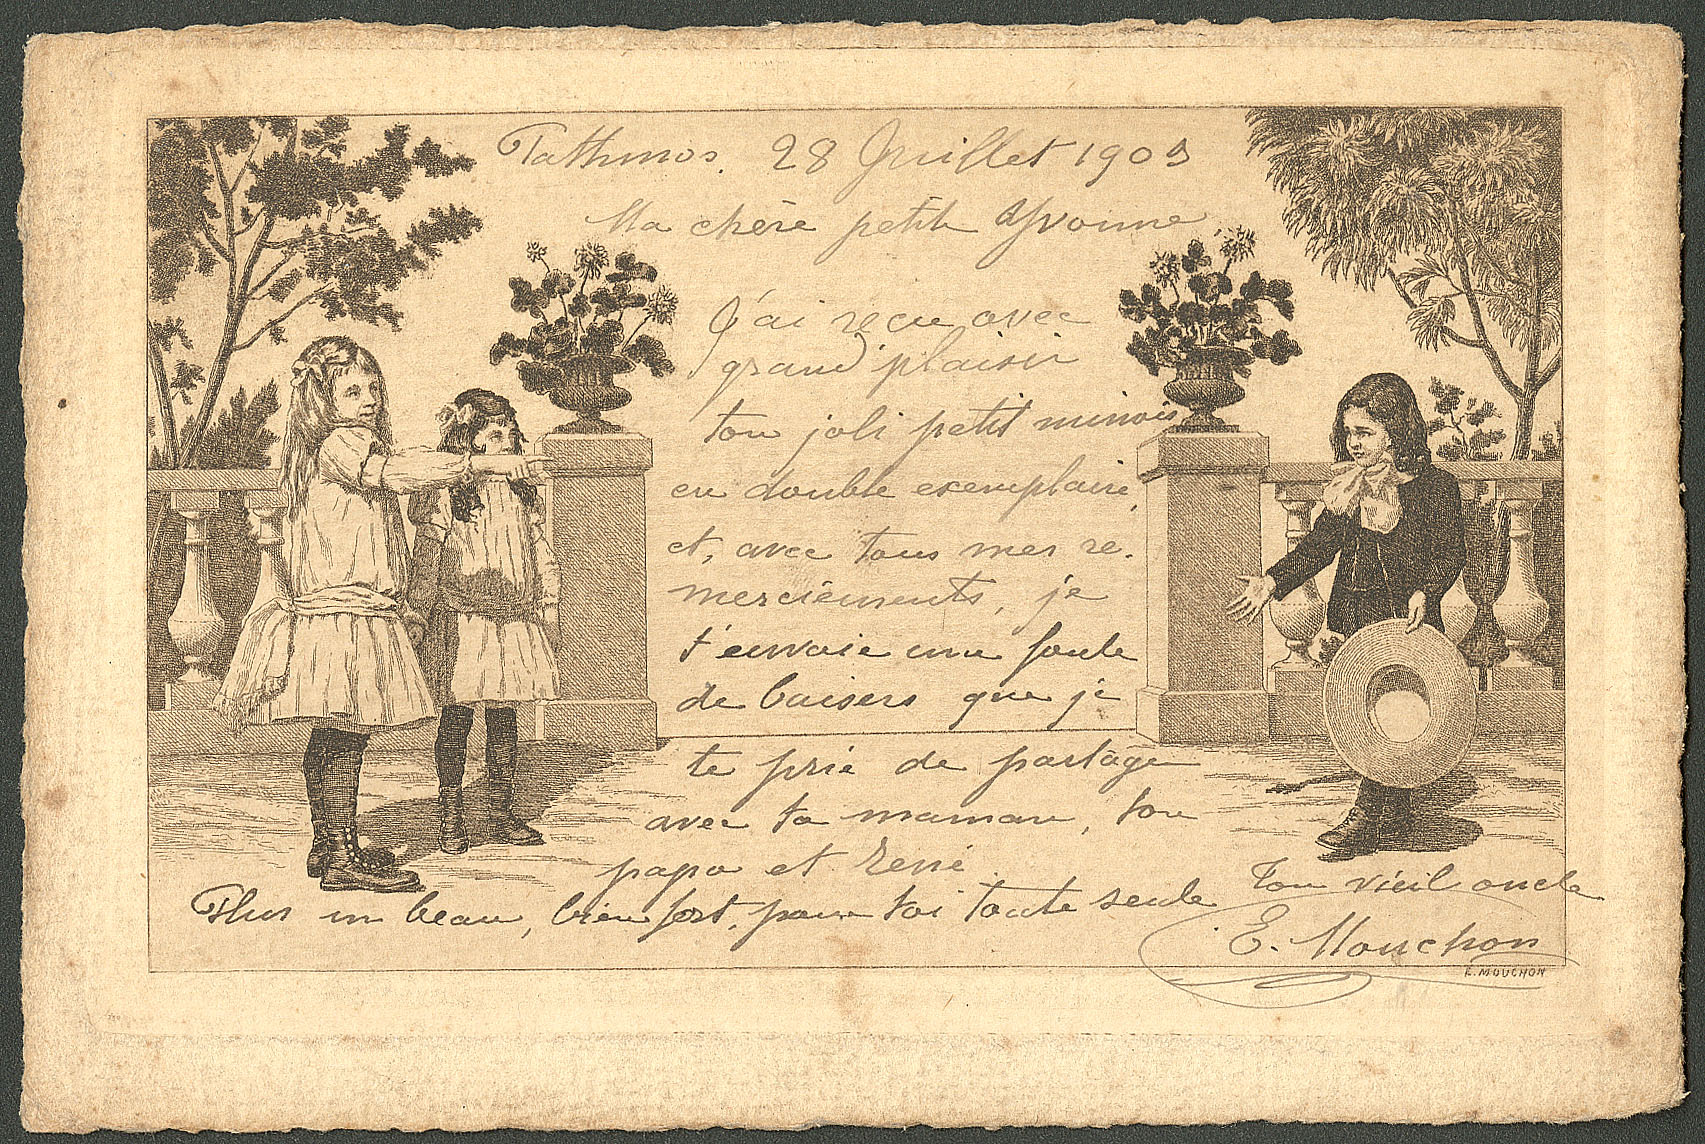 Pathmos. 28 Juillet 1903
Ma chère petite Yvonne
J'ai reçu avec
grand plaisir
ton joli petit minois
en double exemplaire,
et, avec tous mes re-
merciements, je
t'envoie une foule
de baisers que je
te prie de partager
avec ta maman, ton
papa et René.
Plus un beau, bien fort, pour toi toute seule
Ton vieil oncle
E. Mouchon
E. MOUCHON